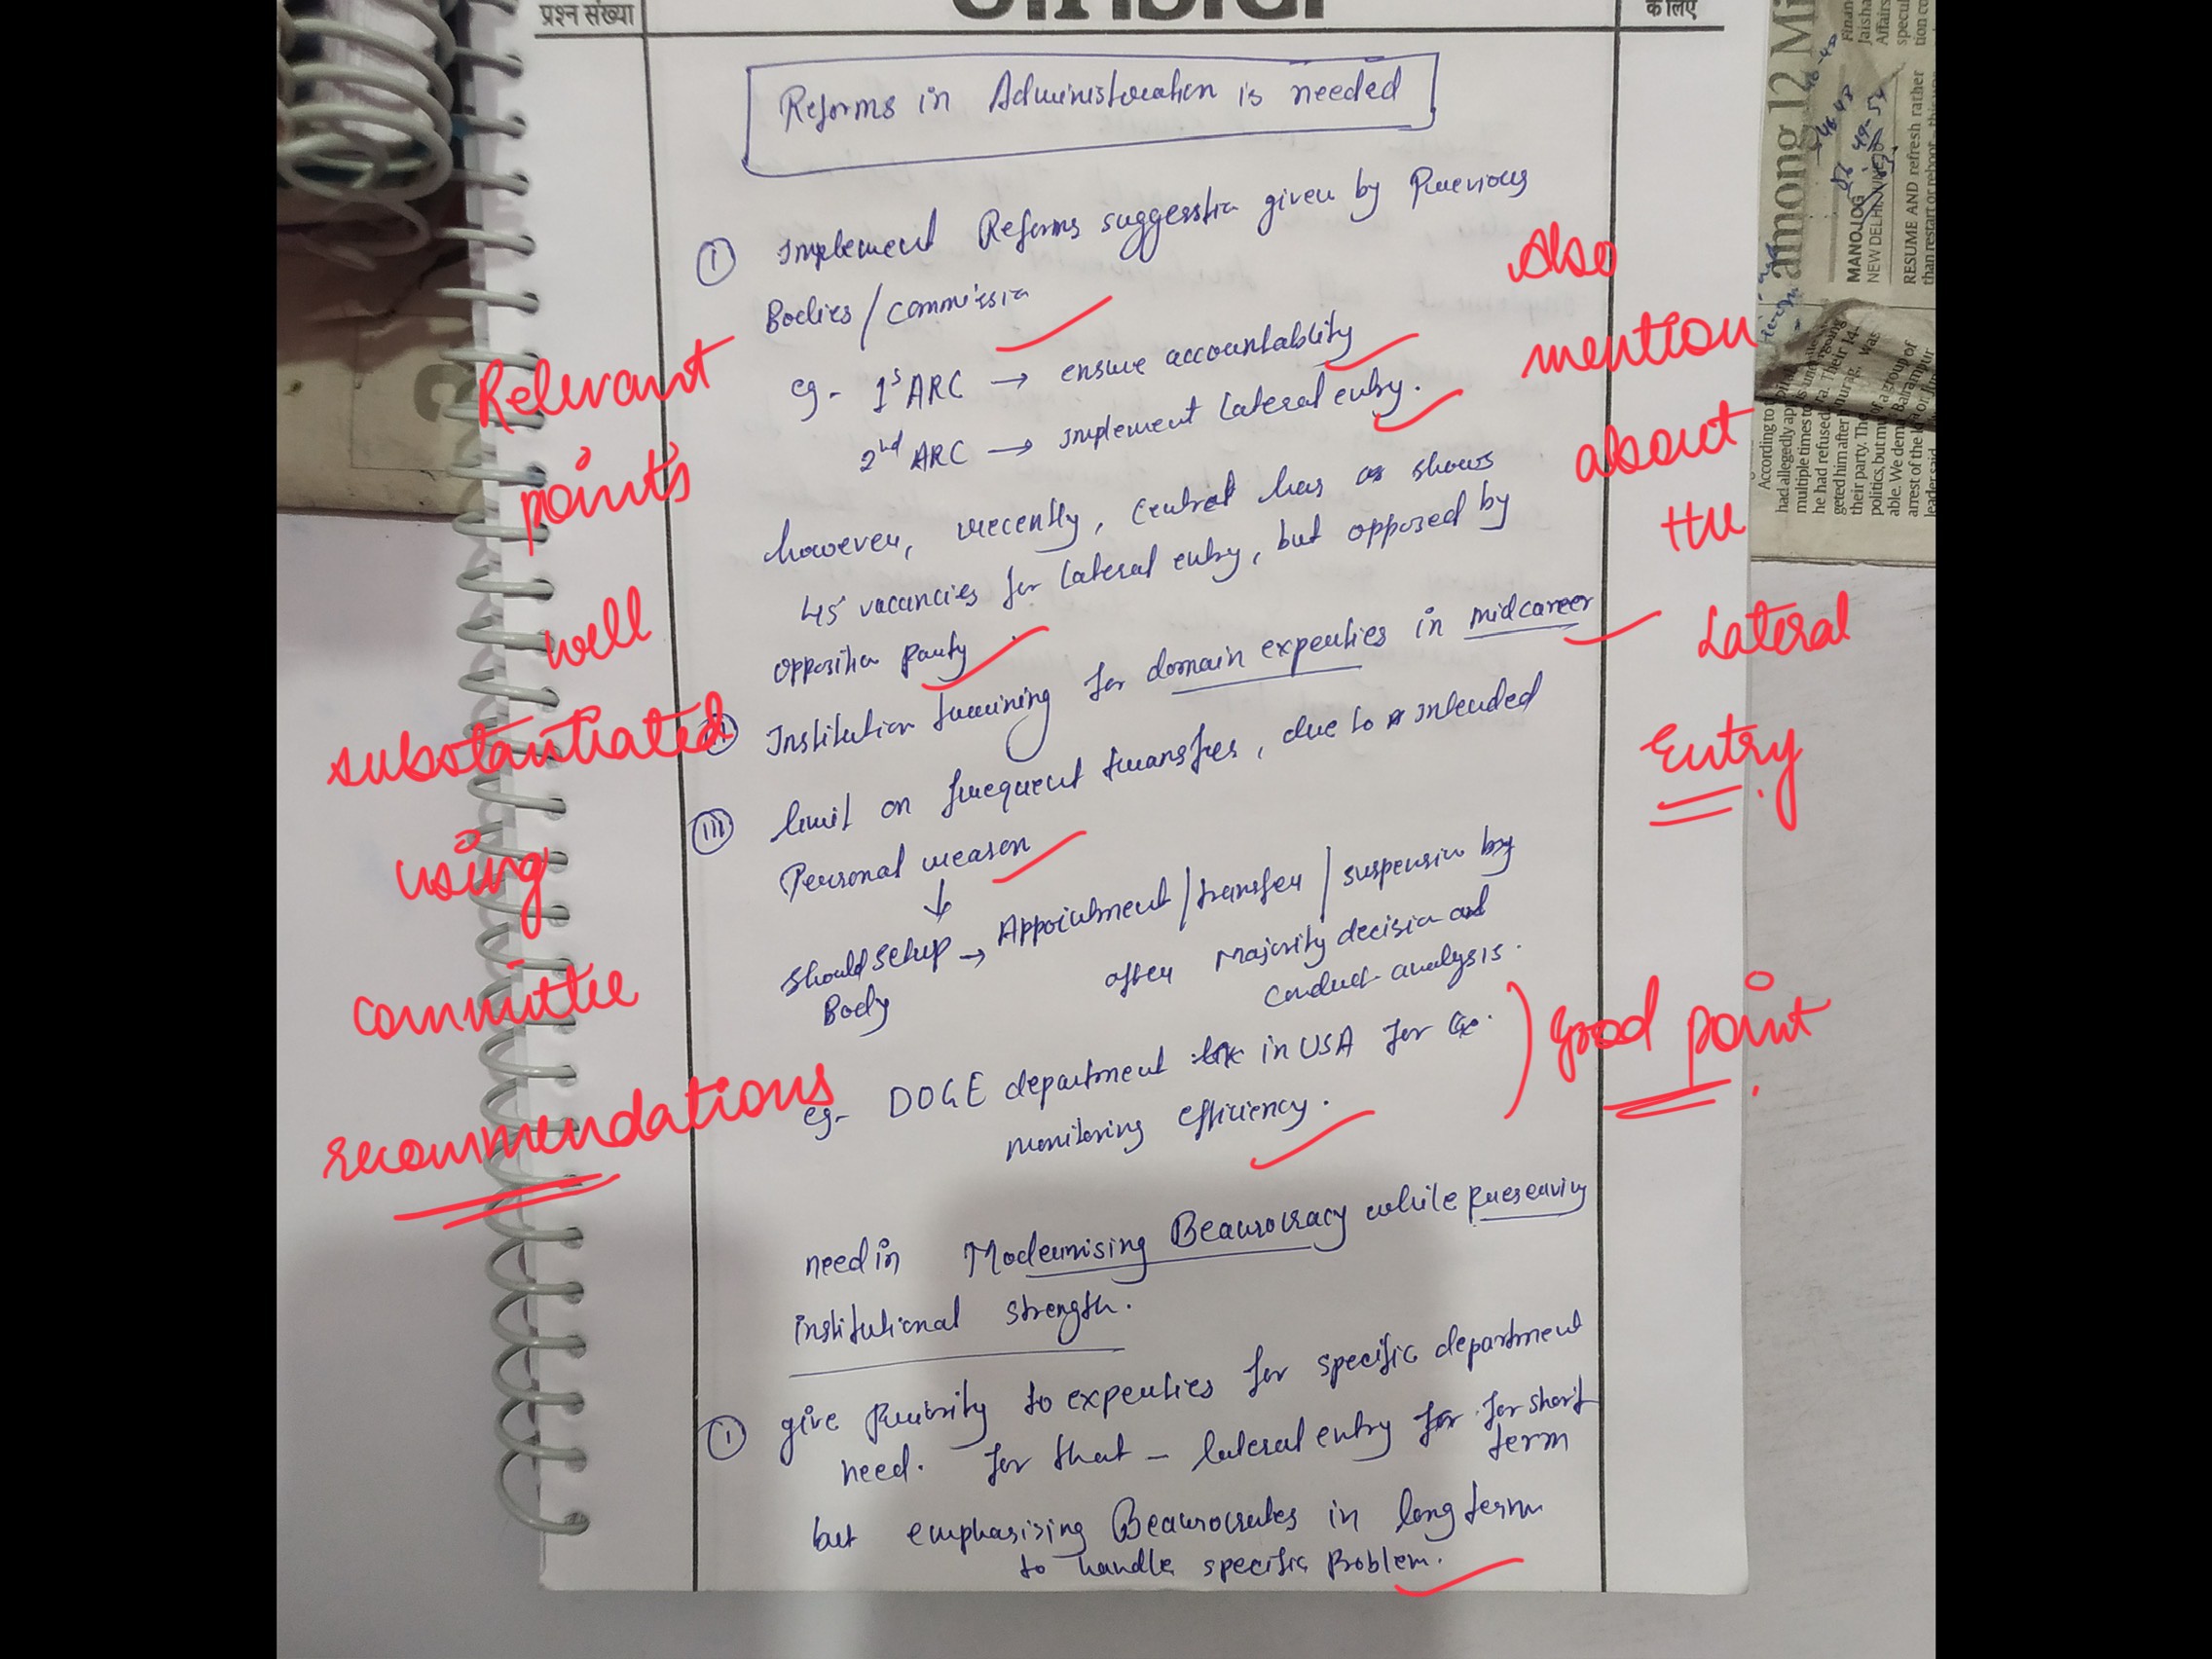 प्रश्न संख्या
के लिए
Reforms in Administration is needed
(I) Implement Reforms suggesstion given by Previous
Bodies / commission
eg - 1st ARC → ensure accountability
2nd ARC → implement Lateral entry.
however, recently, central has as shows
45 vacancies for Lateral entry, but opposed by
opposition Party
Institution training for domain experties in midcareer
(III) limit on frequent transfres, due to intended
Personal reason
↓
should setup → Appointment / transfer / suspension by
Body after Majority decision and
conduct analysis.
eg- DOGE department in USA for
monitoring efficiency.
need in Modernising Beaurocracy while preserving
institutional strength.
(I) give priority to experties for specific department
need. for that - lateral entry for for short
term
but emphasising Beaurocrates in long term
to handle specific Problem.
Relevant
points
well
substantiated
using
committee
recommendations
Also
mention
about
the
Lateral
Entry.
good point.
among 12 Mi
MANOJ CG
NEW DELHI, JUNE
RESUME AND refresh rather
than restart or reboot